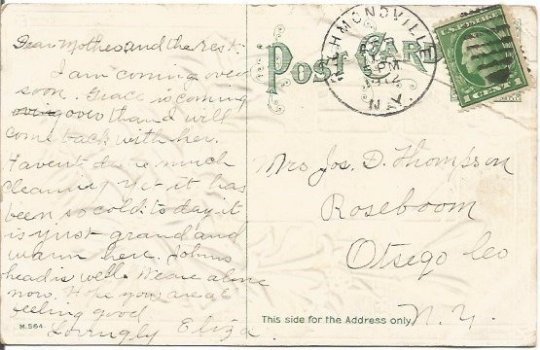 Dear Mother and the rest.
I am coming over
soon. Grace is coming
over than I will
come back with her.
Havent done much
cleaning yet it has
been so cold. today it
is just grand and
warm here. Johns
head is well. We are alone
now. Hope you are all
feeling good
Lovingly Eliza
M.564
POST CARD
RICHMONDVILLE
5 PM
1912
N.Y.
1 CENT 1
Mrs Jos. D. Thompson
Roseboom
Otsego Co
N.Y.
This side for the Address only.